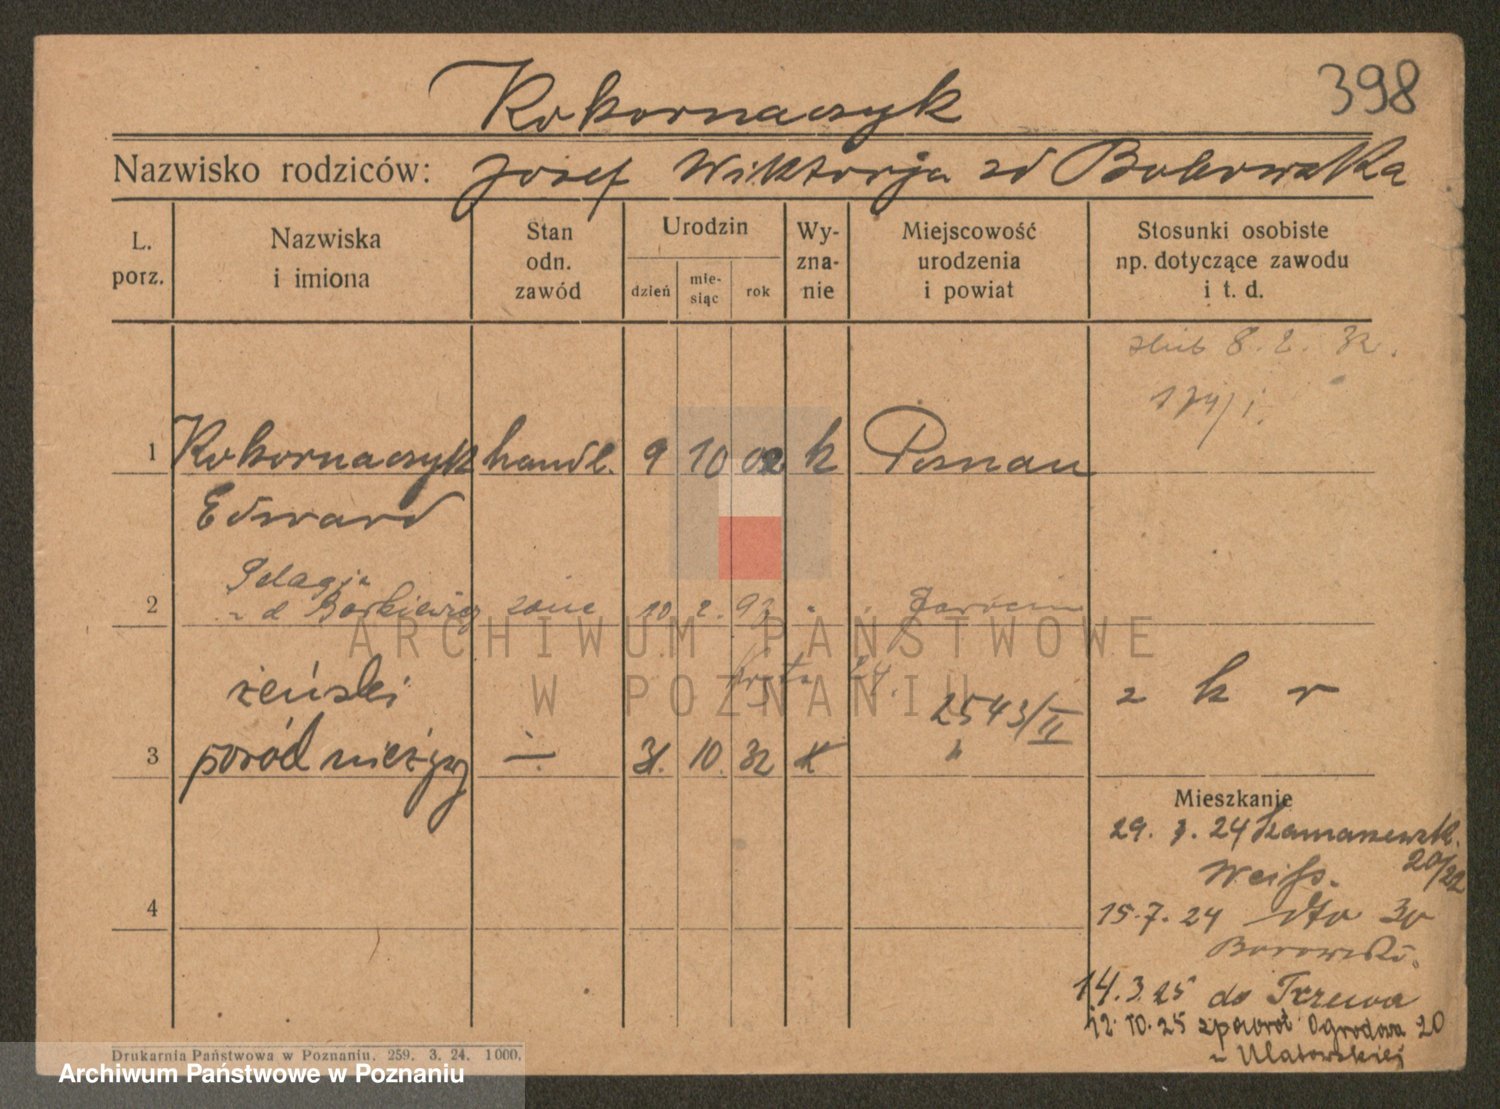 398
Kokornaczyk
Nazwisko rodziców: Josef Wiktorja zd Bobowska
L. porz.
Nazwiska i imiona
Stan odn. zawód
Urodzin
dzień
mie-siąc
rok
Wy-zna-nie
Miejscowość urodzenia i powiat
Stosunki osobiste np. dotyczące zawodu i t. d.
ślub 8. 2. 32.
1 Kokornaczyk handl. 9 10 02 k Poznan
Edward
Pelagja
2 z d Borkiewicz żona 10. 2. 93
24.
żeński 2543/II z k r
3 poród nieżywy — 31. 10. 32 k "
Mieszkanie
29. 3. 24
20/22
Weiss.
4 15.7.24 dto 30
Borowski.
14.3.25 do
12.10.25 zpowrot Ogrodowa 20
u Ulatowskiej
Drukarnia Państwowa w Poznaniu. 259. 3. 24. 1000.
ARCHIWUM PAŃSTWOWE
W POZNANIU
Archiwum Państwowe w Poznaniu